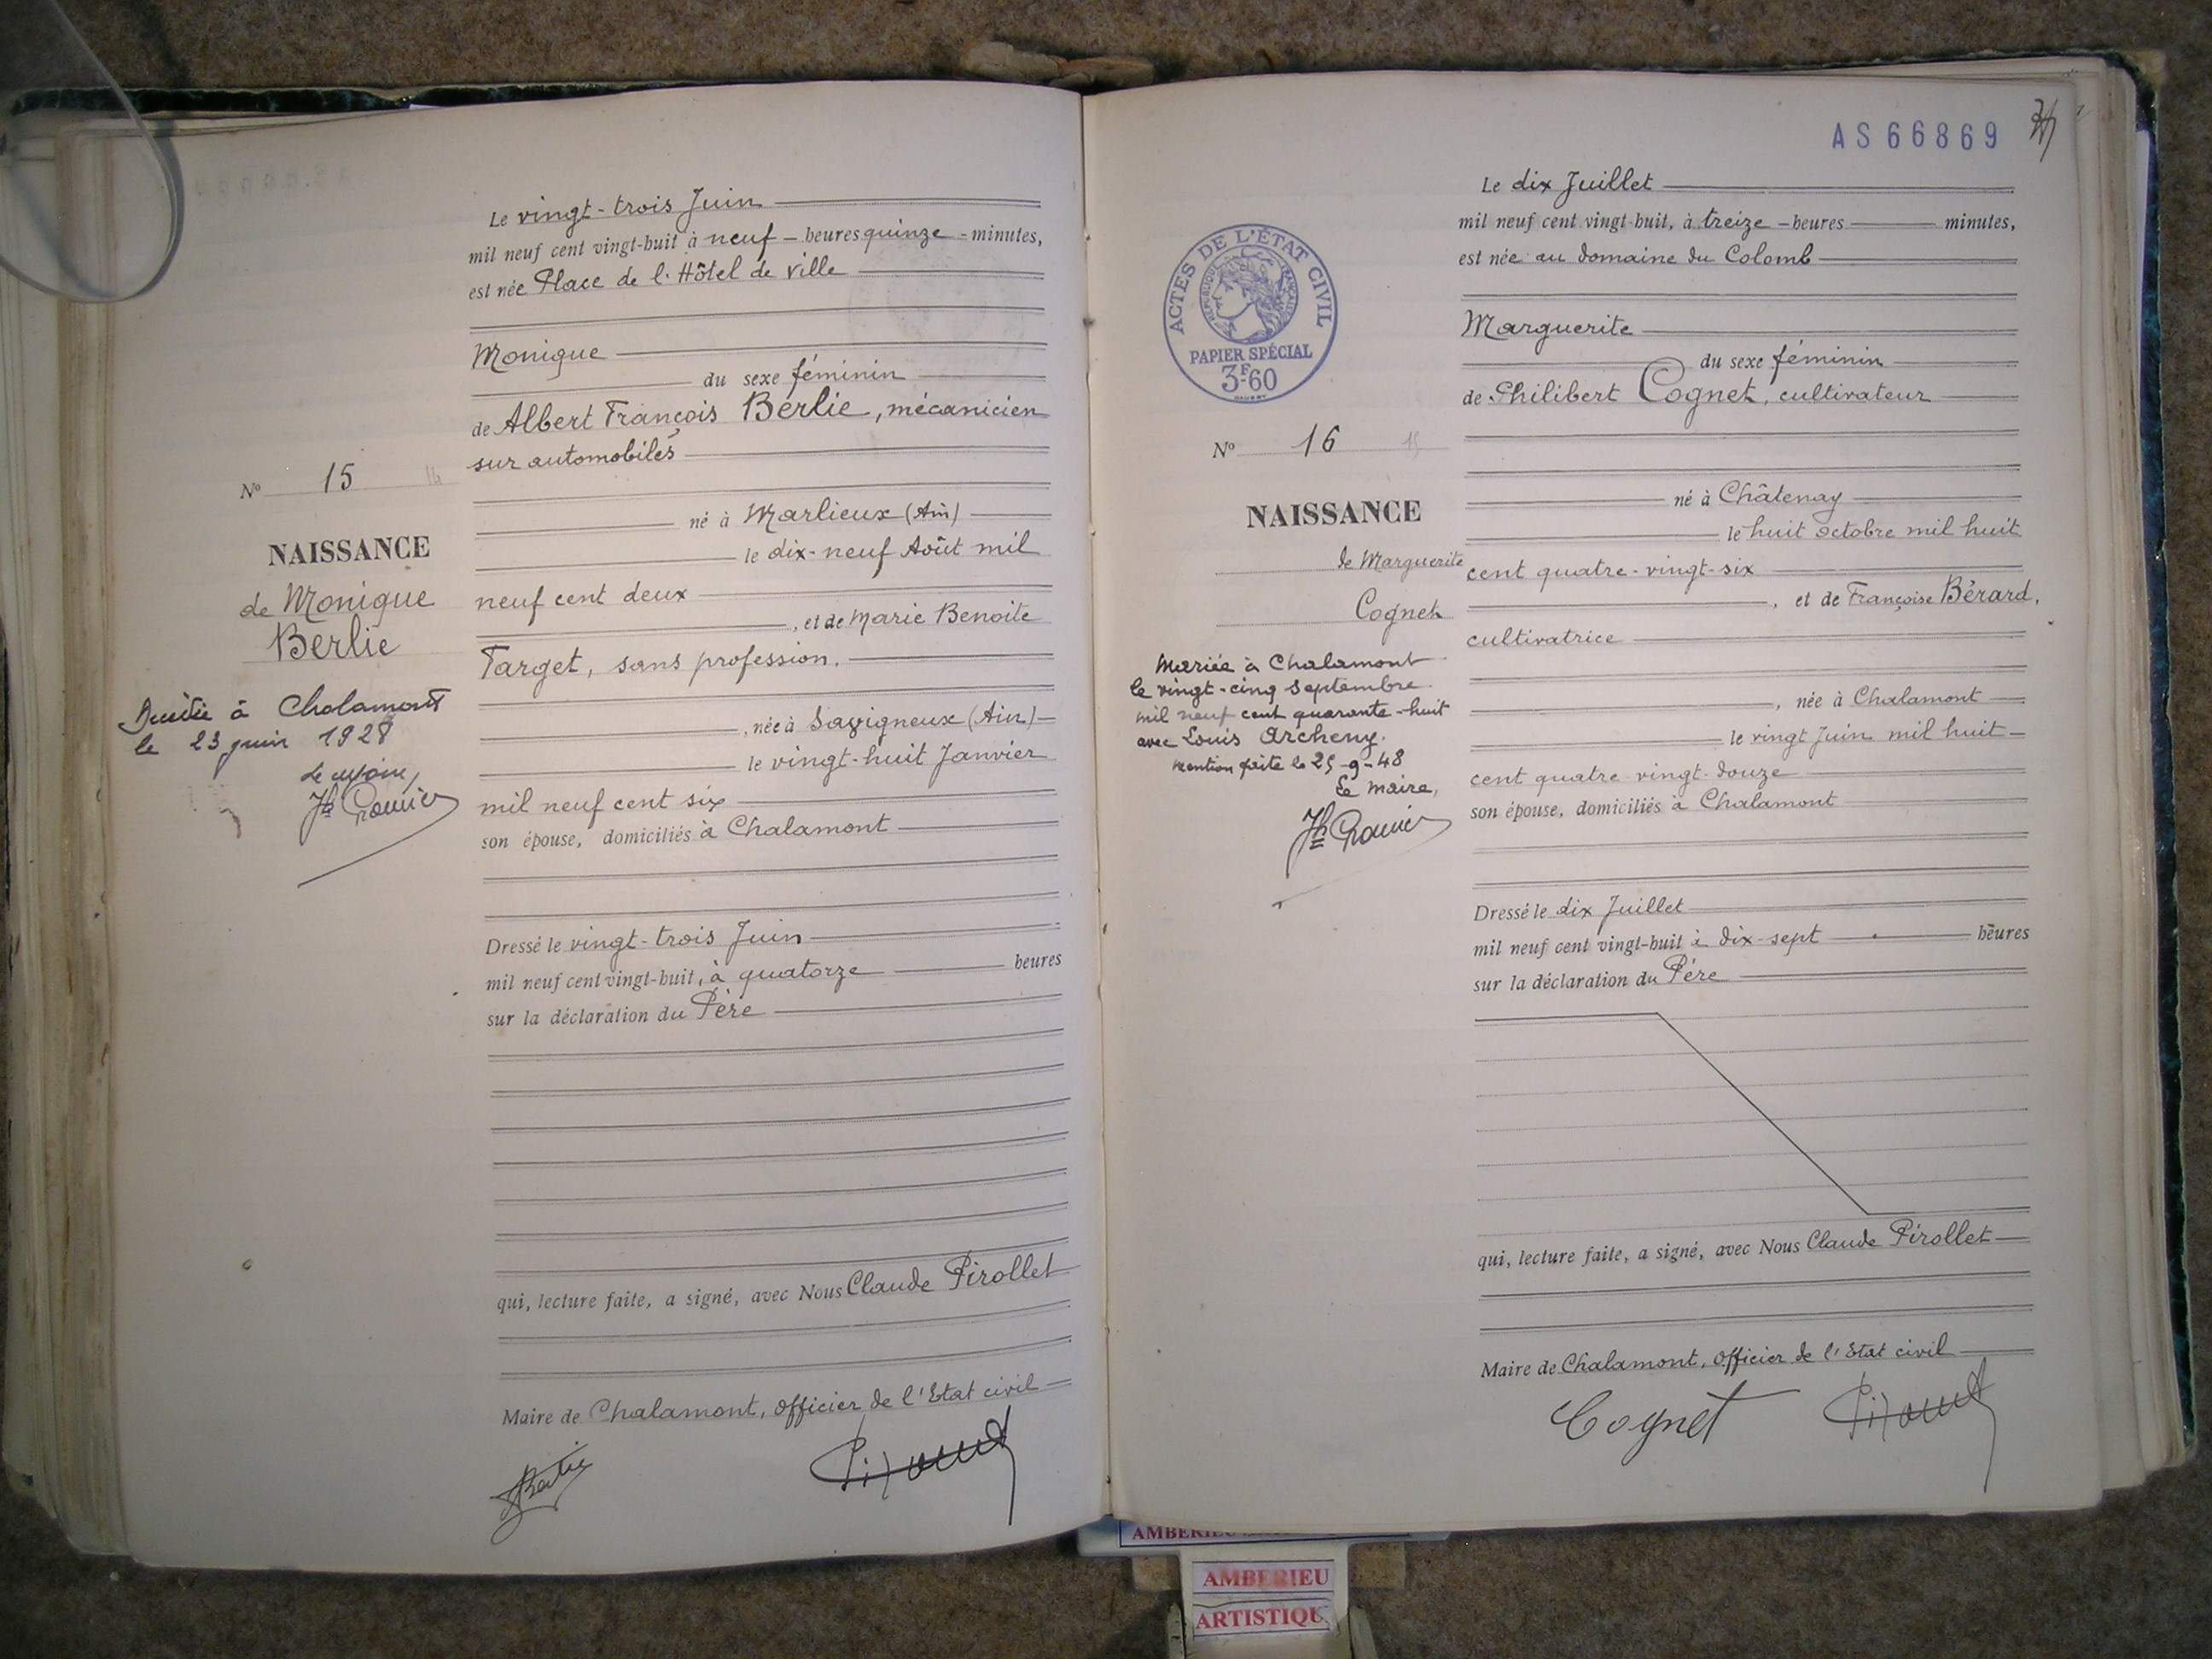 Le vingt-trois Juin
mil neuf cent vingt-huit à neuf - heures quinze - minutes,
est née Place de l'Hôtel de ville
Monique
du sexe féminin
de Albert François Berlie, mécanicien
sur automobiles
né à Marlieux (Ain)
le dix-neuf Août mil
neuf cent deux
, et de Marie Benoite
Target, sans profession.
, née à Savigneux (Ain)
le vingt-huit Janvier
mil neuf cent six
son épouse, domiciliés à Chalamont
Dressé le vingt-trois Juin
mil neuf cent vingt-huit, à quatorze heures
sur la déclaration du Père
qui, lecture faite, a signé, avec Nous Claude Pirollet
Maire de Chalamont, Officier de l'Etat civil
Nº 15
NAISSANCE
de Monique
Berlie
Décédée à Chalamont
le 23 juin 1928
Le Maire,
AS66869
Le dix Juillet
mil neuf cent vingt-huit, à treize - heures minutes,
est née au domaine du Colomb
Marguerite
du sexe féminin
de Philibert Cognet, cultivateur
né à Châtenay
le huit octobre mil huit
cent quatre-vingt-six
, et de Françoise Bérard,
cultivatrice
, née à Chalamont
le vingt Juin mil huit
cent quatre-vingt-douze
son épouse, domiciliés à Chalamont
Dressé le dix Juillet
mil neuf cent vingt-huit à dix-sept heures
sur la déclaration du Père
qui, lecture faite, a signé, avec Nous Claude Pirollet
Maire de Chalamont, Officier de l'Etat civil
Cognet
ACTES DE L'ÉTAT CIVIL
RÉPUBLIQUE FRANÇAISE
PAPIER SPÉCIAL
3F60
Nº 16 15
NAISSANCE
de Marguerite
Cognet
Mariée à Chalamont
le vingt-cinq Septembre
mil neuf cent quarante-huit
avec Louis Archeny.
Mention faite le 25-9-48
Le Maire,
AMBERIEU
AMBERIEU
ARTISTIQU